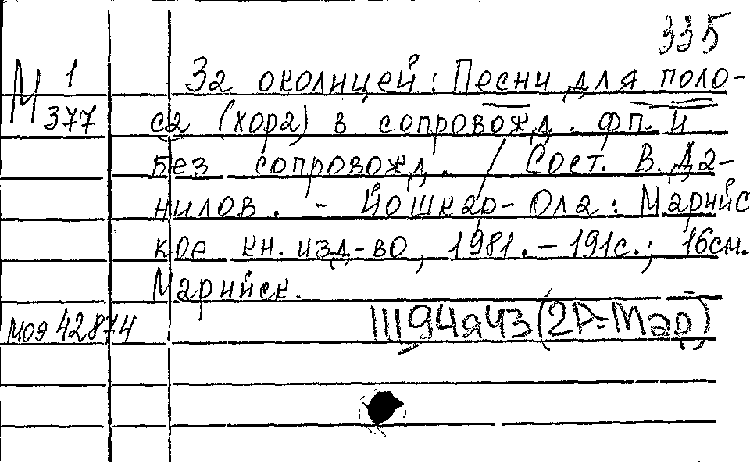 335
М 1/377
За околицей: Песни для поло-
са (хора) в сопровожд. фп. и
без сопровожд. / Сост. В. Да-
нилов. - Йошкар-Ола: Марийс
кое кн. изд-во, 1981. - 191с.; 16см.
Марийск.
42874
Щ94я43(2Р-Мар)